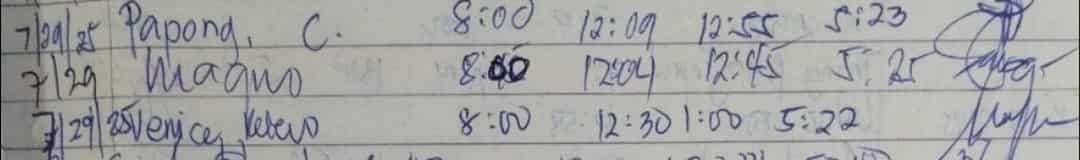 7/29/25 Papong, C. 8:00 12:09 12:55 5:23
7/29 Magno 8:00 12:04 12:45 5:25
7/29/25 Venice 8:00 12:30 1:00 5:22